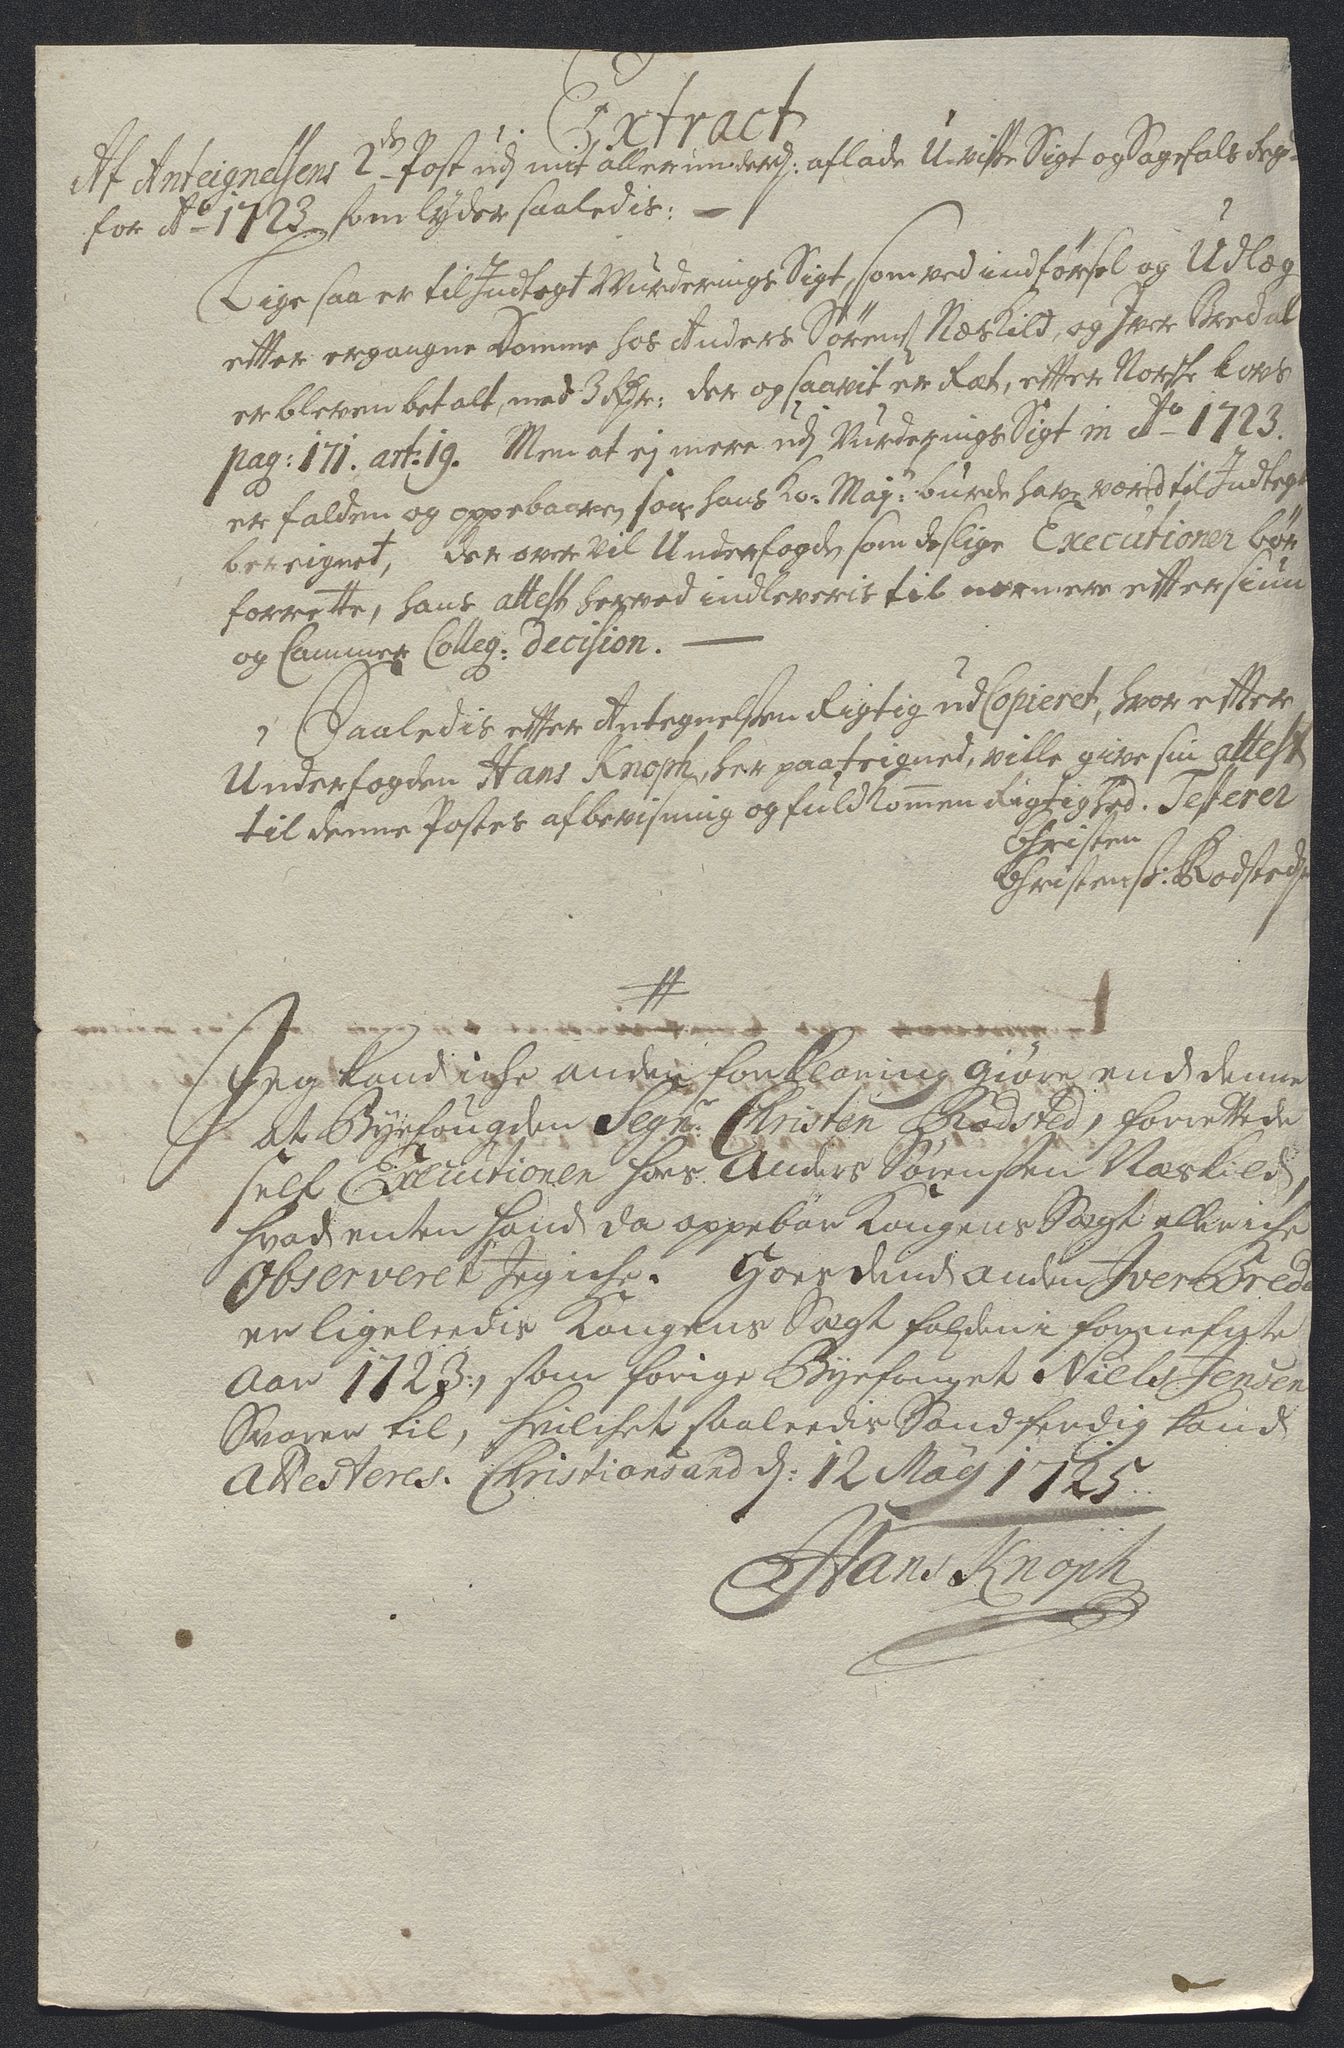 Extract
Af Anteignelsens 2de Post udj mit allerunderd: aflade Uvisse Sigt og Sagefals Regn:
for Ao 1723 som lyder saaledis:
Lige saa er til Indtegt Wurderings Sigt, som ved indførsel og Udlæg
etter ergangne Domme hos Anders Sørens: Næskild, og Iver Bredal
er bleven betalt, med 3 Rdr: der og saavit er Ret, etter Norske Lovs
pag: 171. art: 19. Men at ej mere udj Vurderings Sigt in Ao 1723.
er falden og oppebaaren, som hans Ko: Maj: burde have væred til Indtegt
bereignet, der over vil Underfogden, som deslige Executioner bør
forrette, hans attest herved indleveris til nermere ettersiun
og Cammer Colleg: decision.
Saaledis etter Antegnelsen Rigtig ud Copieret, hvor etter
Underfogden Hans Knoph, her paateignet, ville give sin attest
til denne Postes afbevisning og fuldkommen Rigtighed. Testerer
Christen
Christens: Rodsted
Jeg kand iche anden forklaring giøre end denne
At Byefougden Seigr: Christen Rodsted, forrettede
self Executionen hos Anders Sørenssen Næskild,
hvad enten hand da oppebar Kongens Sagt eller iche
observeret Jeg iche. Hoes dend anden Iver Breda
er ligeledis Kongens Sagt falden i forneffnte
Aar 1723:, som forige Byefouget Niels Jensen
Svarer til, hvilchet saaledis Sandferdig kand
Attesteres. Christiansand d: 12 Maÿ 1725.
Hans Knoph